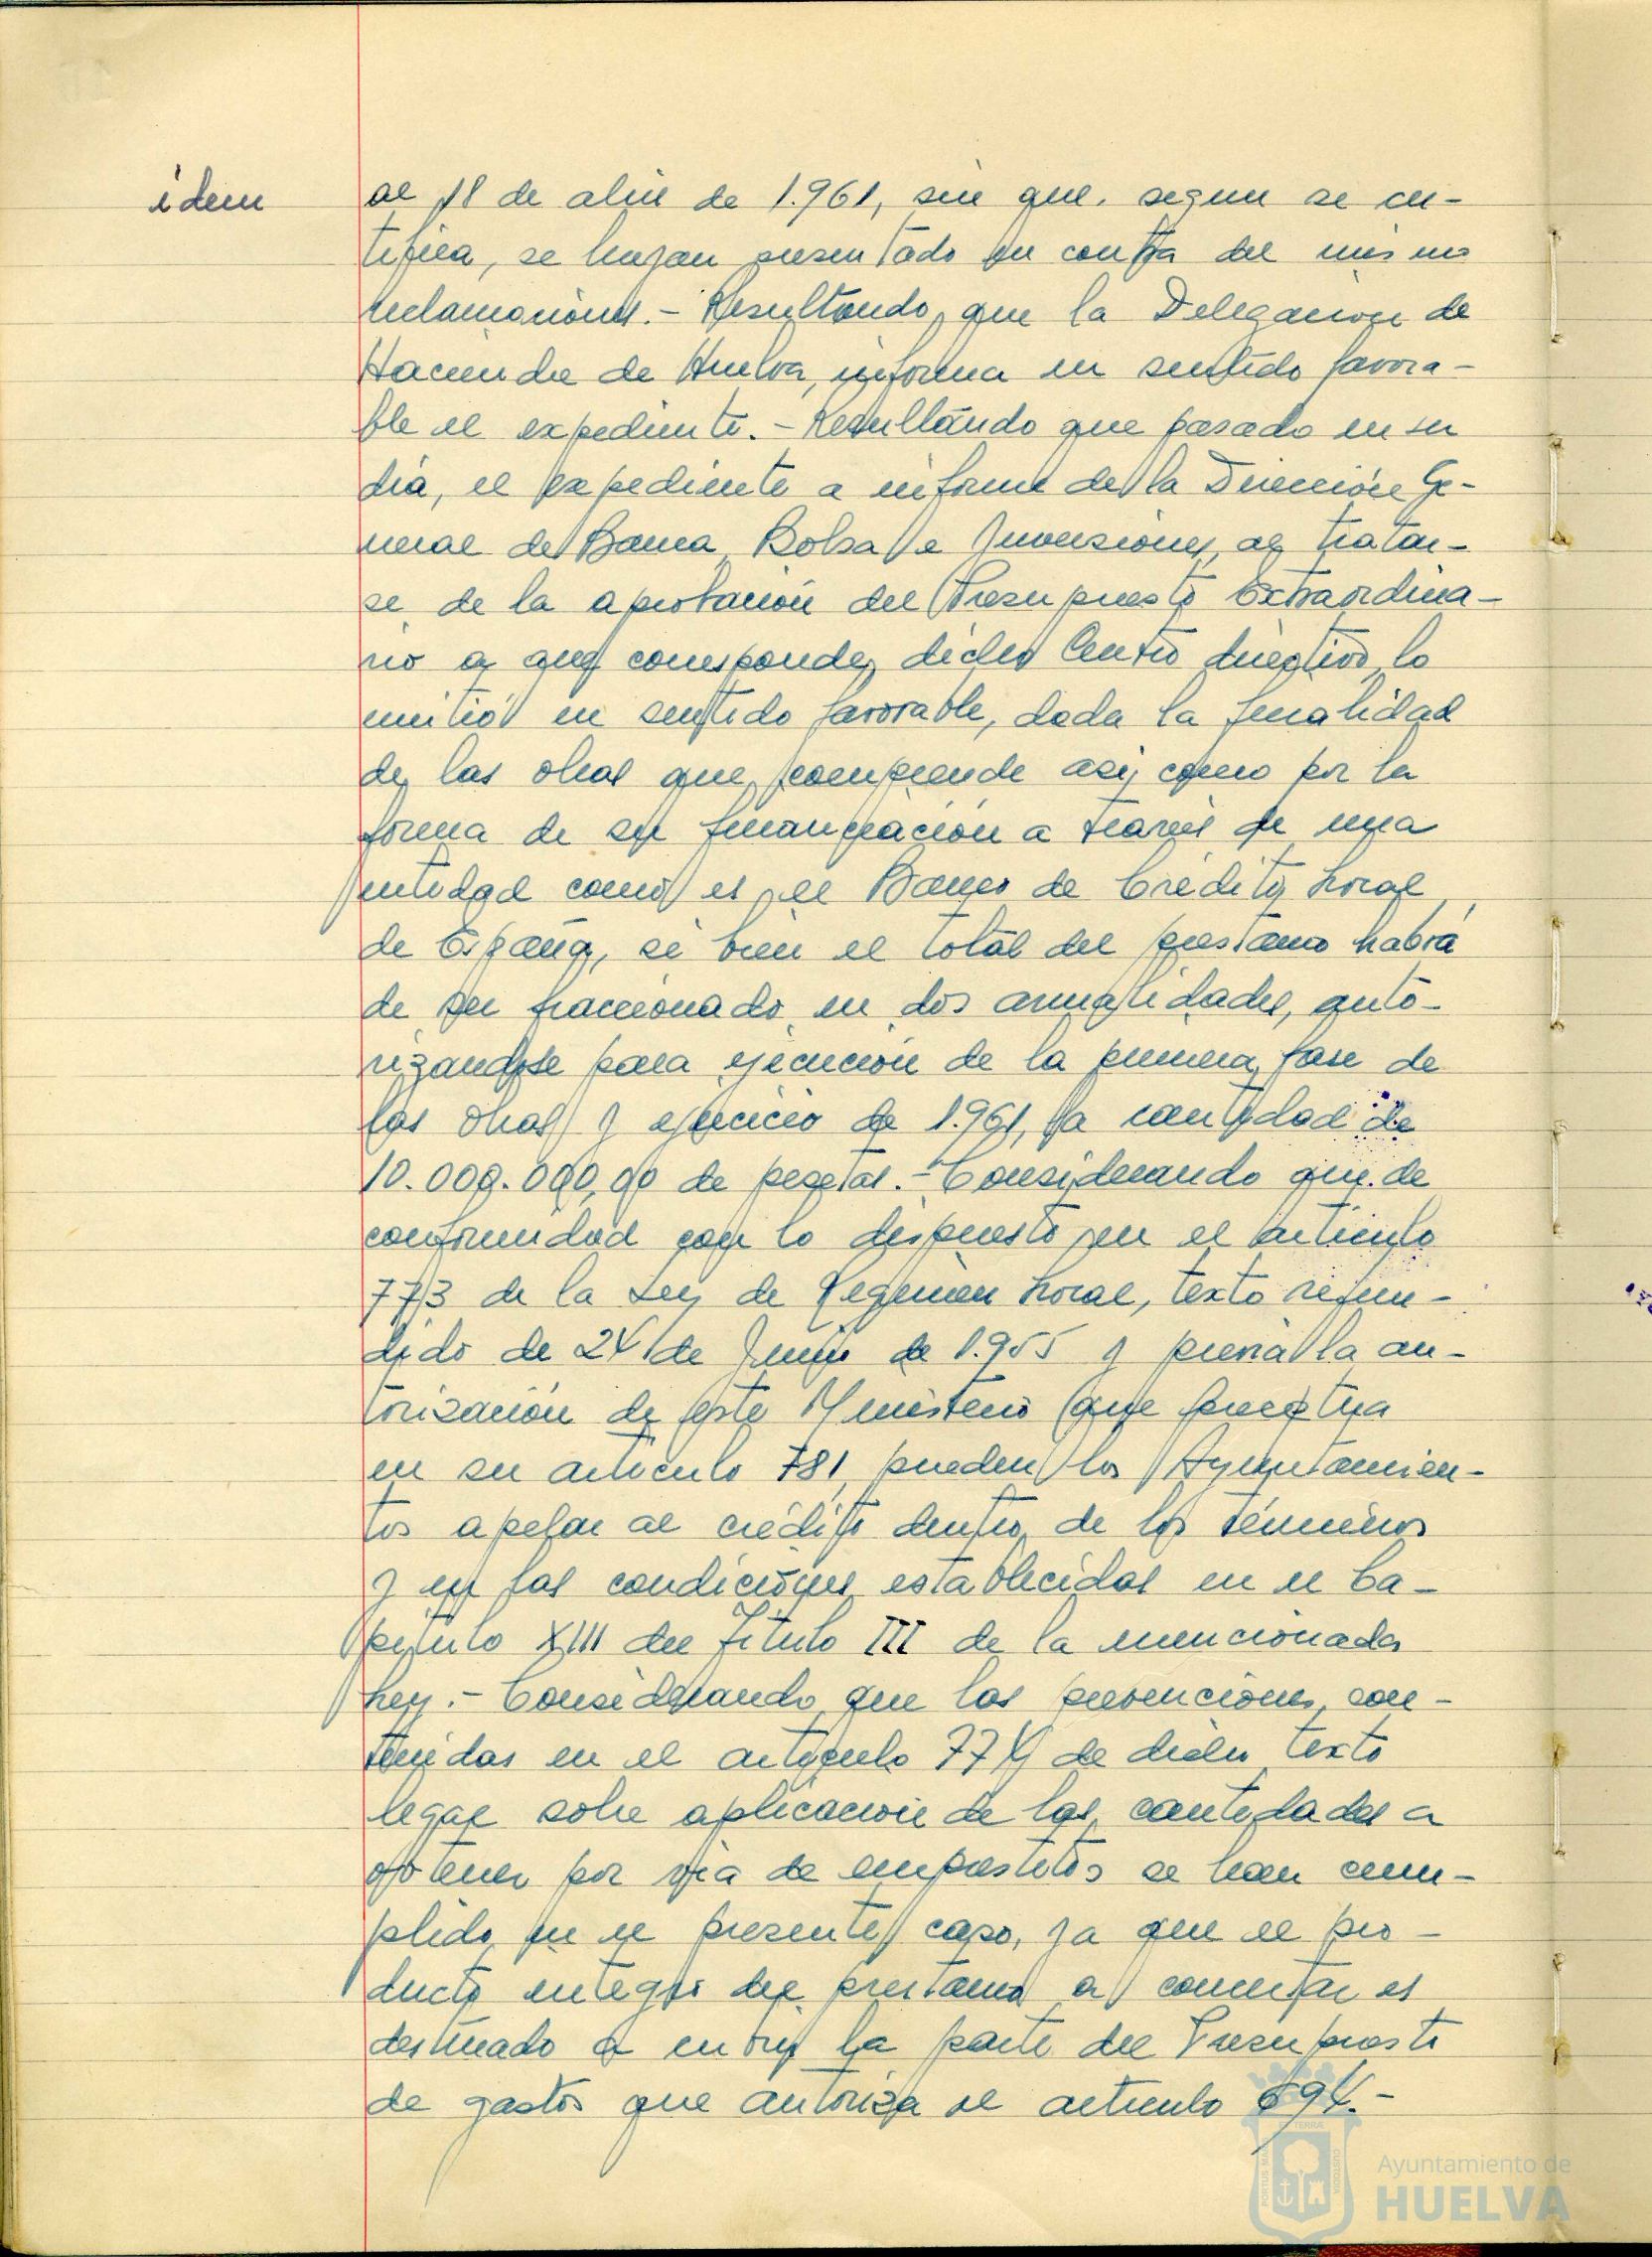 idem
al 18 de abril de 1.961, sin que, segun se cer-
tifica, se hayan presentado en contra del mismo
reclamaciones.- Resultando, que la Delegacion de
Hacienda de Huelva, informa en sentido favora-
ble el expediente.- Resultando que pasado en su
dia, el expediente a informe de la Dirección Ge-
neral de Banca, Bolsa e Inversiones, al tratar-
se de la aprobación del Presupuesto Extraordina-
rio a que corresponde, dicho Centro directivo, lo
emitió en sentido favorable, dada la finalidad
de las obras que comprende asi, como por la
forma de su financiación a través de una
entidad como es, el Banco de Crédito Local
de España, si bien el total del prestamo habrá
de ser fraccionado en dos anualidades, auto-
rizandose para ejecución de la primera fase de
las obras y ejercicio de 1.961, la cantidad de
10.000.000,00 de pesetas.- Considerando que de
conformidad con lo dispuesto en el artículo
773 de la Ley de Regimen Local, texto refun-
dido de 24 de Junio de 1.955 y previa la au-
torización de este Ministerio que preceptua
en su articulo 781, pueden los Ayuntamien-
tos apelar al crédito dentro de los términos
y en las condiciones establecidas en el Ca-
pitulo XIII del Título III de la mencionada
Ley.- Considerando que las prevenciones con-
tenidas en el artículo 774 de dicho texto
legal sobre aplicacion de las cantidades a
obtener por via de emprestitos se han cum-
plido en el presente caso, ya que el pro-
ducto integro del prestamo a concertar es
destinado a cubrir la parte del Presupuesto
de gastos que autoriza el articulo 694.-
Ayuntamiento de
HUELVA